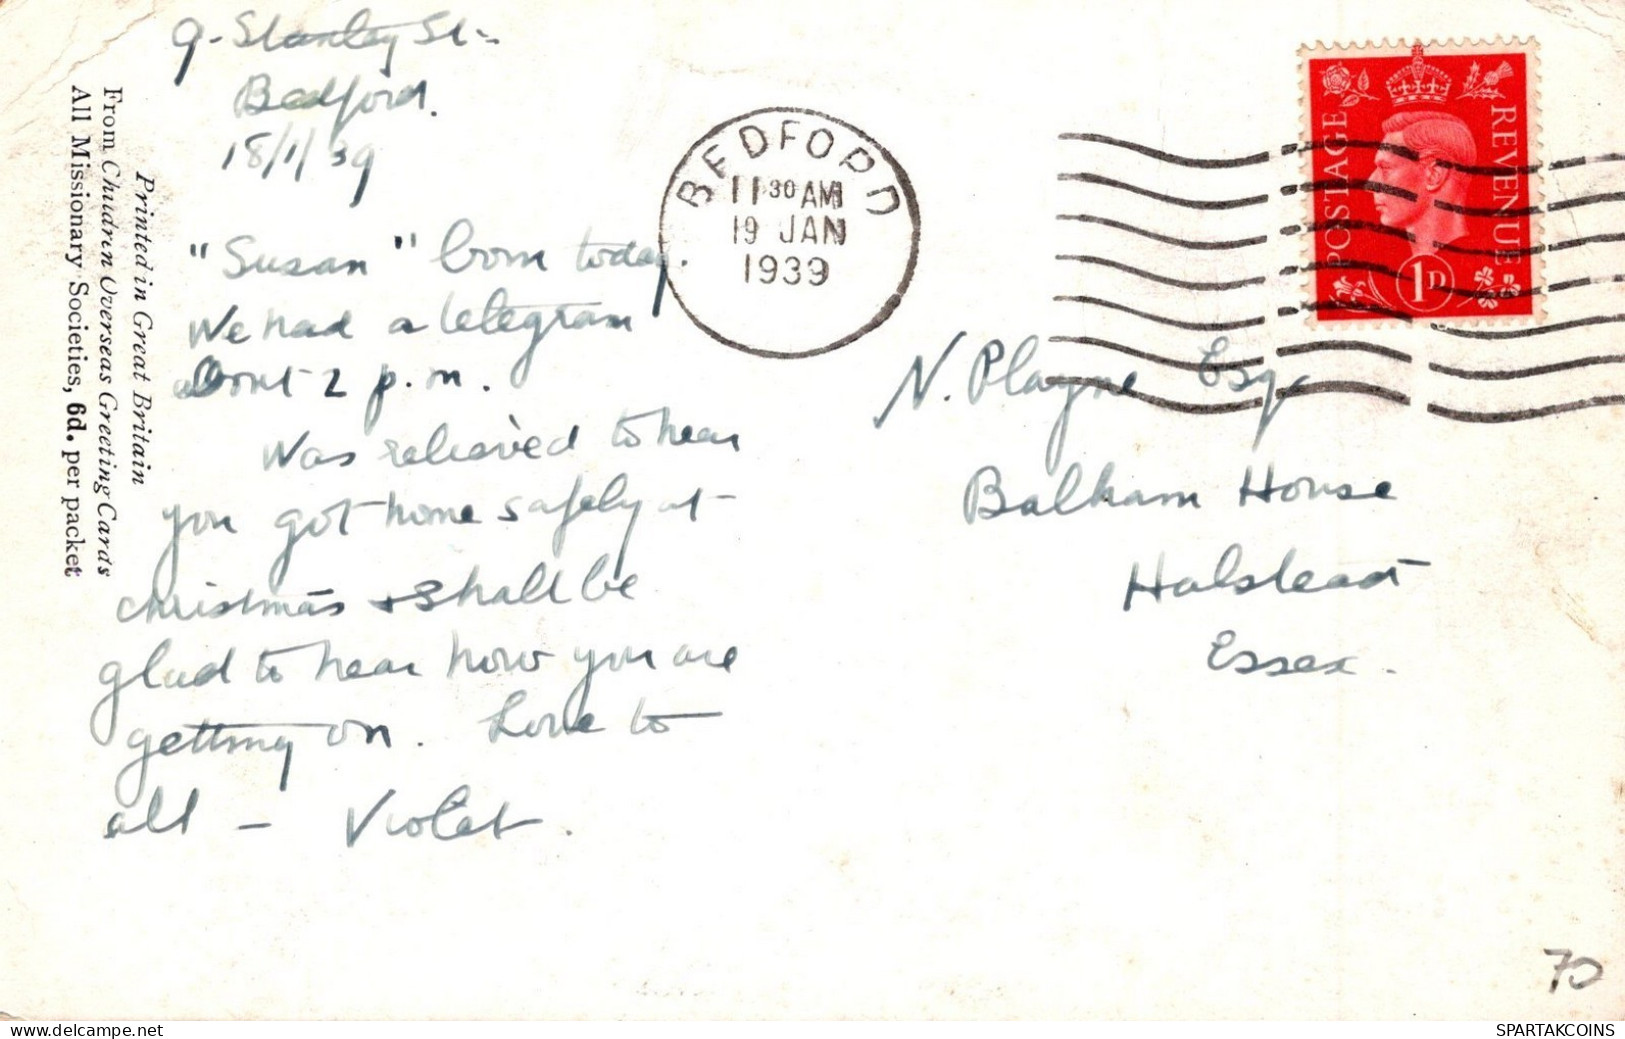 9. Stanley St.
Bedford.
18/1/39
"Susan" born today.
We had a telegram
about 2 p.m.
Was relieved to hear
you got home safely at
christmas + shall be
glad to hear how you are
getting on. Love to
all - Violet.
Printed in Great Britain
From Children Overseas Greeting Cards
All Missionary Societies, 6d. per packet
BEDFORD
11 30 AM
19 JAN
1939
POSTAGE
REVENUE
1D
N. Playne Esq.
Balham House
Halstead
Essex.
70
SPARTAKCOINS